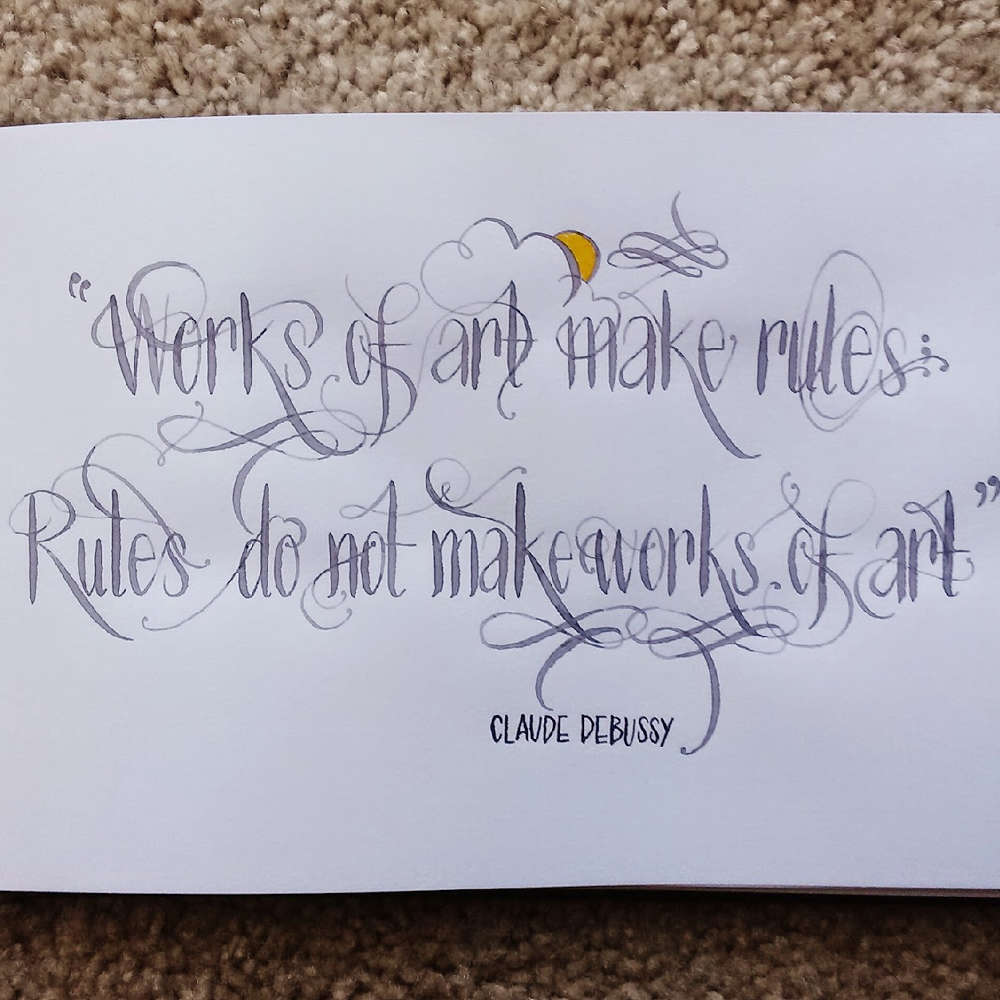 “Works of art make rules;
Rules do not make works of art”
CLAUDE DEBUSSY